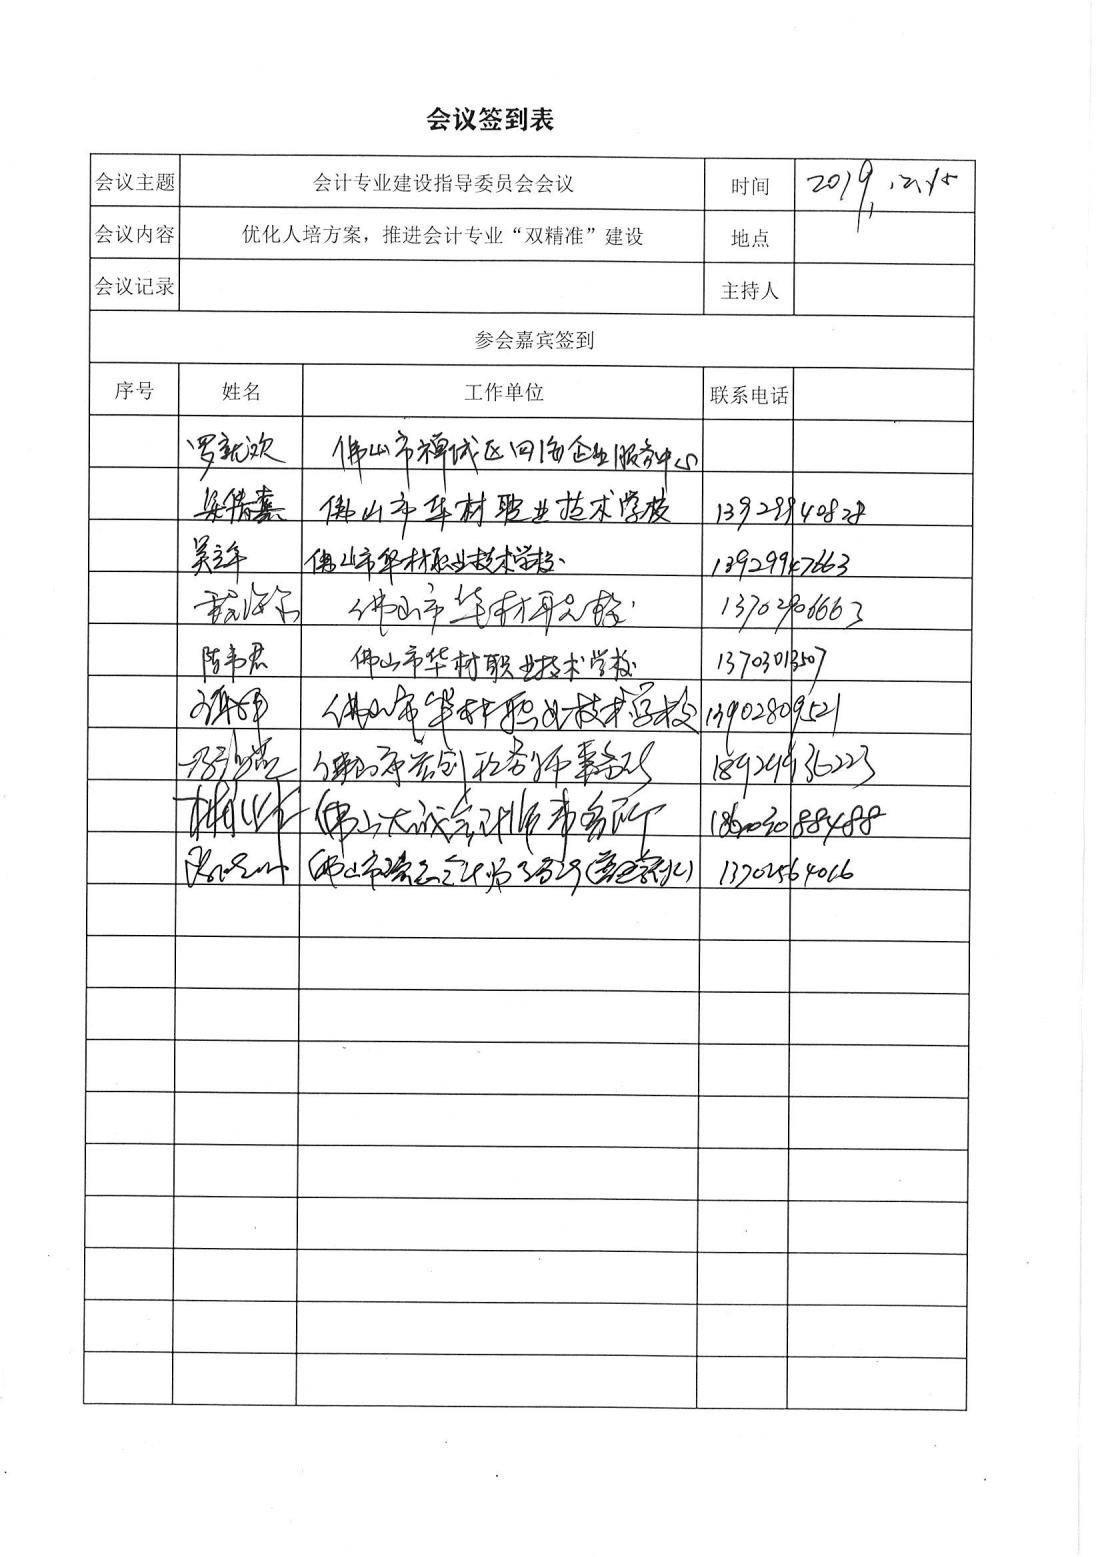 会议签到表
会议主题 会计专业建设指导委员会会议 时间 2019.12.15
会议内容 优化人培方案，推进会计专业“双精准”建设 地点
会议记录 主持人
参会嘉宾签到
序号 姓名 工作单位 联系电话
罗 欢 佛山市禅城区四海企业服务中心
梁倩嘉 佛山市华材职业技术学校 13929940828
吴立年 佛山市华材职业技术学校 13929947663
佛山市华材职校 13702906663
陈韦君 佛山市华材职业技术学校 13703013507
佛山市华材职业技术学校 13902809521
佛山市 创税务师事务所 18929936223
林 佛山大诚会计师事务所
佛山市 会计师事务所 13702564066